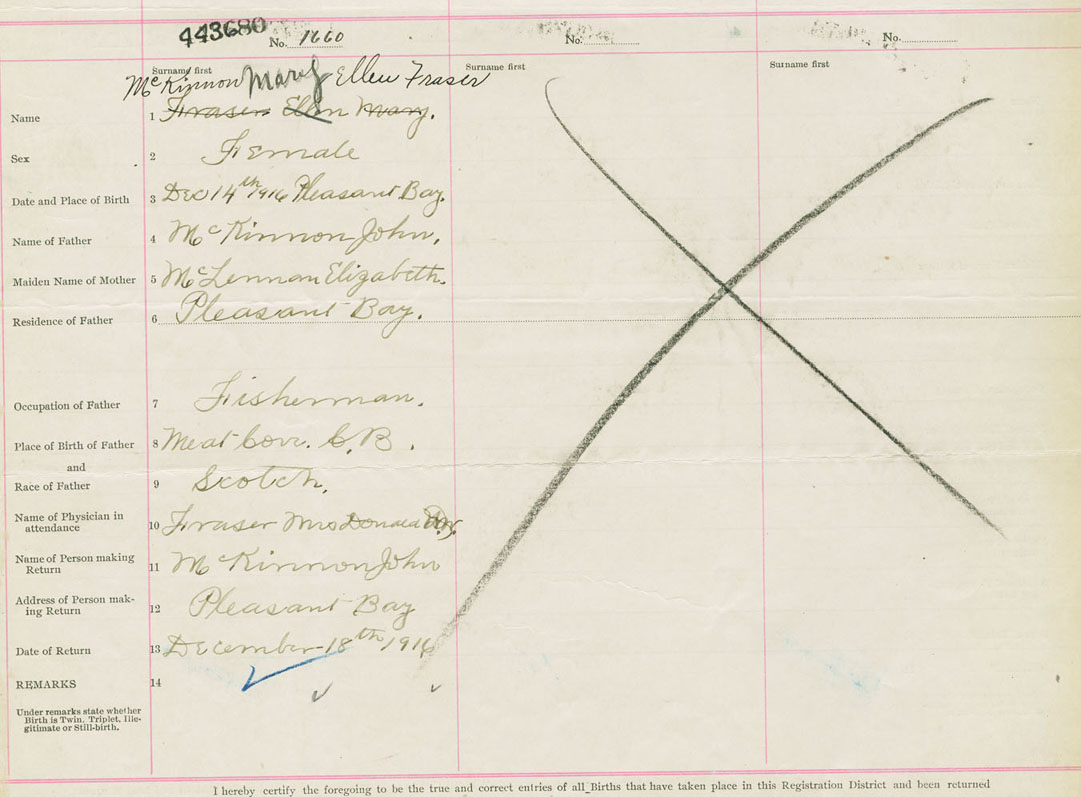 443680 No. 1660 No. No.
Surname first Surname first Surname first
McKinnon Mary Ellen Fraser
Name 1 Fraser Ellen Mary.
Sex 2 Female
Date and Place of Birth 3 Dec 14th 1916 Pleasant Bay.
Name of Father 4 McKinnon John.
Maiden Name of Mother 5 McLennan Elizabeth.
Residence of Father 6 Pleasant Bay.
Occupation of Father 7 Fisherman.
Place of Birth of Father 8 Meat Cove. C.B.
and
Race of Father 9 Scotch.
Name of Physician in
attendance 10 Fraser Mrs Donald
Name of Person making
Return 11 McKinnon John
Address of Person mak-
ing Return 12 Pleasant Bay
Date of Return 13 December 18th 1916
REMARKS 14
Under remarks state whether
Birth is Twin, Triplet, Ille-
gitimate or Still-birth.
I hereby certify the foregoing to be the true and correct entries of all Births that have taken place in this Registration District and been returned